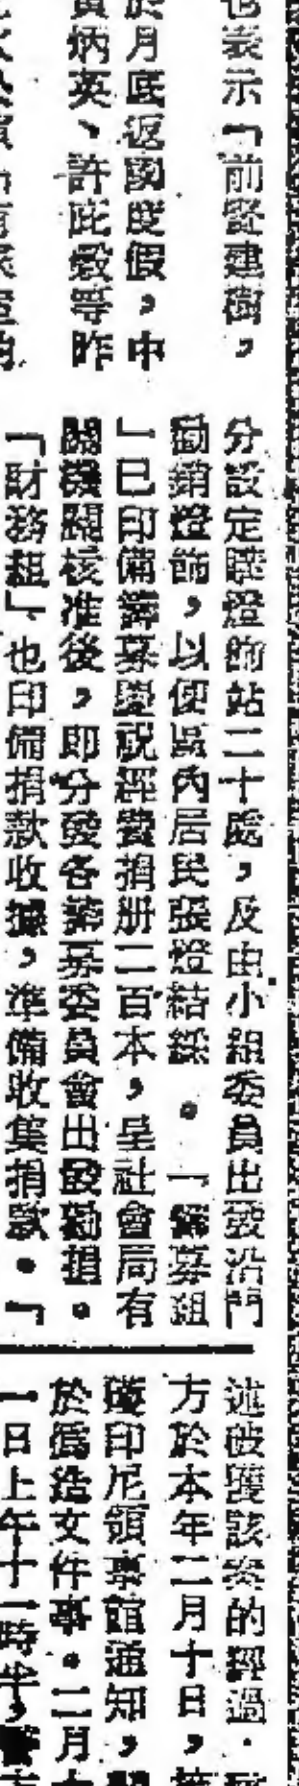 也表示「前賢建樹，
於月底返國度假，中
炳英、許
等昨
分設定
燈飾站二十處，及由小組委員出發沿門
勸銷燈飾，以便區內居民張燈結綵。「籌募組
」已印備籌募慶祝經費捐册二百本，呈社會局有
關機關核准後，即分發各籌募委員會出發勸捐。
「財務組」也印備捐款收據，準備收集捐款。「
述破獲該案的經過．
方於本年二月十日，
印尼領事館通知，
於僞造文件事。二月
一日上午十一時半，警